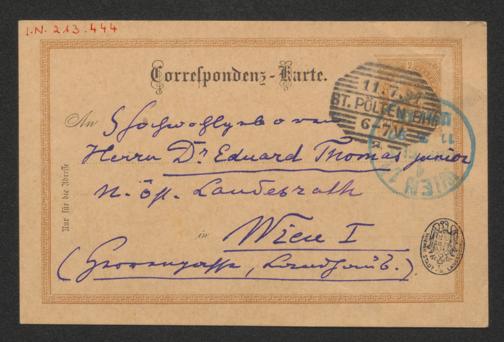 I.N. 213.444
Correspondenz-Karte.
11.7.
ST. PÖLTEN
6-7
An Hochwohlgeboren
Herrn Dr Eduard Thomas junior
n. öst. Landesrath
in Wien I
(Herrengasse, Landhaus.)
Nur für die Adresse
WIEN